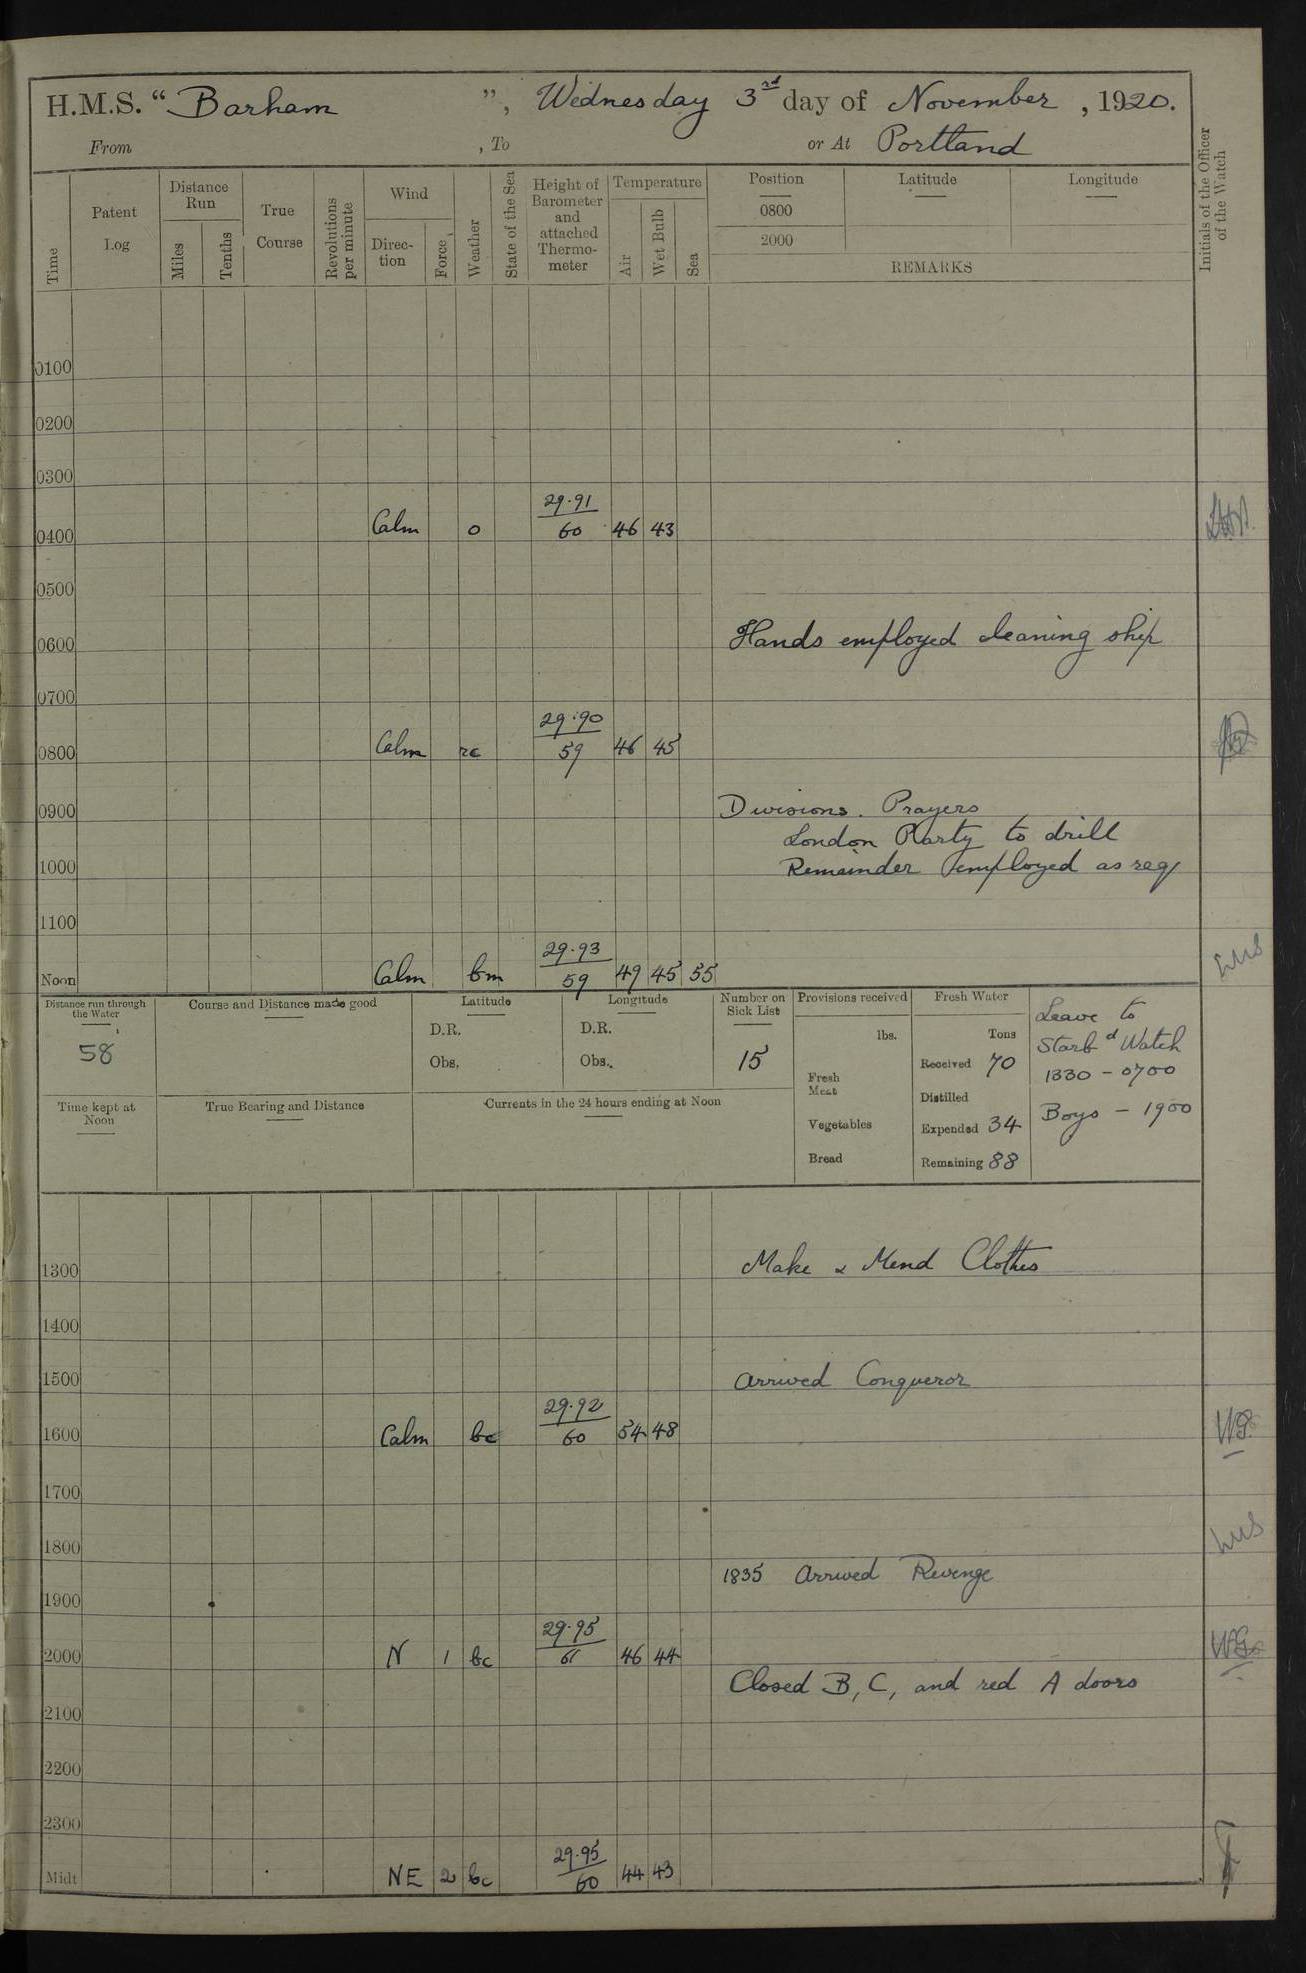 H.M.S. “ Barham ”, Wednesday 3rd day of November , 1920.
From , To or At Portland
Time
Patent Log
Distance Run
Miles
Tenths
True Course
Revolutions per minute
Wind
Direc- tion
Force
Weather
State of the Sea
Height of Barometer and attached Thermo- meter
Temperature
Air
Wet Bulb
Sea
Position
0800
2000
Latitude
Longitude
REMARKS
Initials of the Officer of the Watch
0100
0200
0300
29.91
0400 Calm o 60 46 43
0500
0600 Hands employed cleaning ship
0700
29.90
0800 Calm rc 59 46 45
0900 Divisions. Prayers
London Party to drill
1000 Remainder employed as req
1100
29.93
Noon Calm bm 59 49 45 55
Distance run through the Water
58
Course and Distance made good
Latitude
D.R.
Obs.
Longitude
D.R.
Obs.
Number on Sick List
15
Provisions received
lbs.
Fresh Meat
Vegetables
Bread
Fresh Water
Tons
Received 70
Distilled
Expended 34
Remaining 88
Leave to
Starbd Watch
1330 - 0700
Boys - 1900
Time kept at Noon
True Bearing and Distance
Currents in the 24 hours ending at Noon
1300 Make & Mend Clothes
1400
1500 Arrived Conqueror
29.92
1600 Calm bc 60 54 48
1700
1800
1835 Arrived Revenge
1900
29.95
2000 N 1 bc 61 46 44
Closed B, C, and red A doors
2100
2200
2300
29.95
Midt NE 2 bc 60 44 43